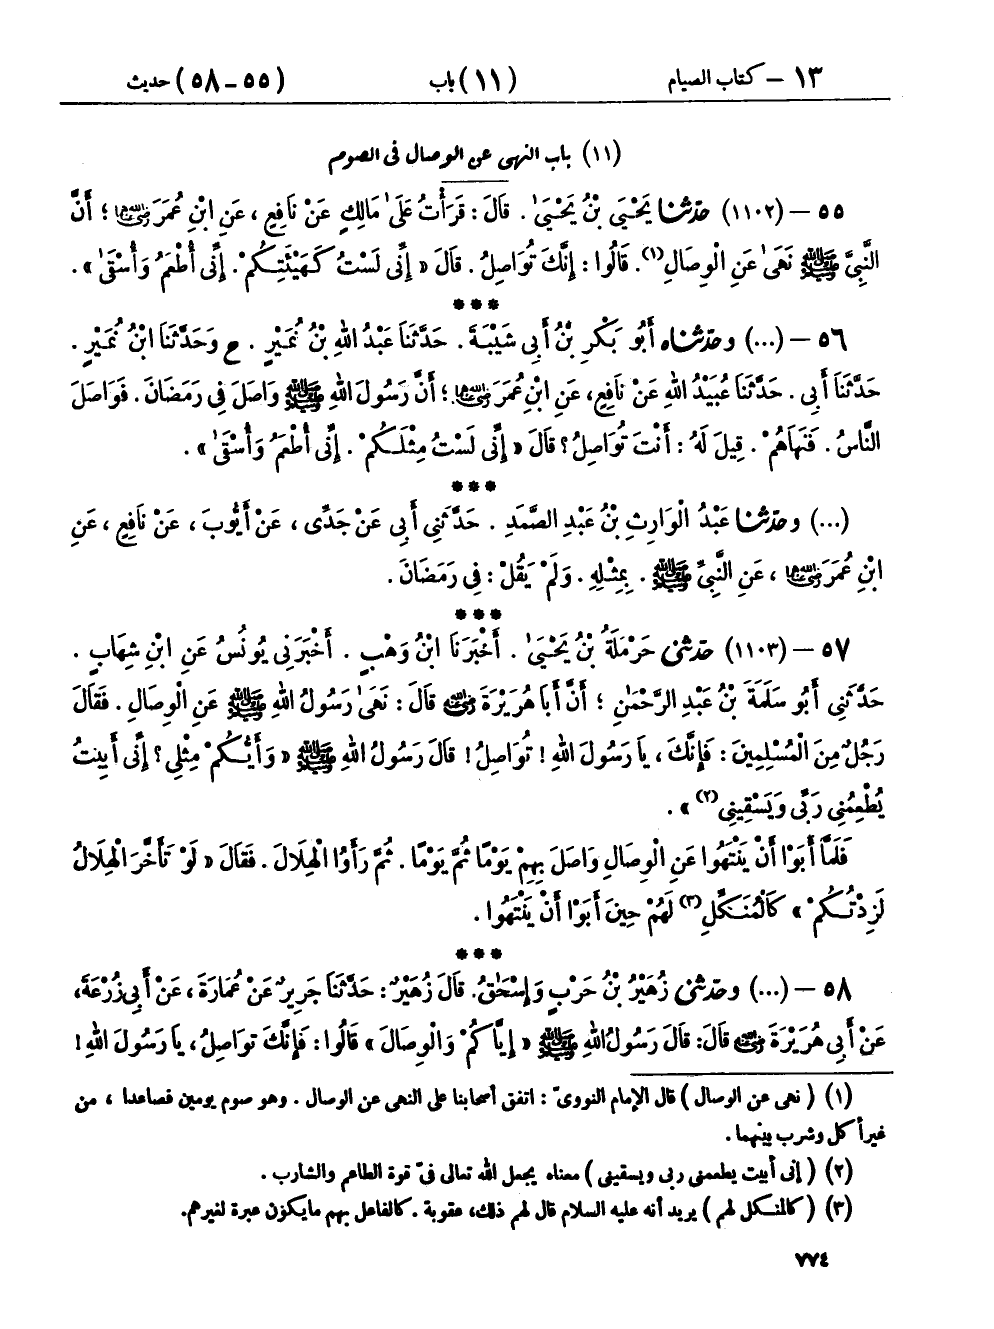 ١٣ – كتاب الصيام (١١) باب (٥٥ – ٥٨) حديث
(١١) باب النهى عن الوصال فى الصوم
٥٥ – (١١٠٢) حَدَّثَنَا يَحْيَىٰ بْنُ يَحْيَىٰ . قَالَ : قَرَأْتُ عَلَىٰ مَالِكٍ عَنْ نَافِعٍ ، عَنِ ابْنِ عُمَرَ رضي الله عنهما ؛ أَنَّ
النَّبِىَّ ﷺ نَهَىٰ عَنِ الْوِصَالِ(١). قَالُوا : إِنَّكَ تُوَاصِلُ . قَالَ « إِنِّى لَسْتُ كَهَيْئَتِكُمْ . إِنِّى أُطْعَمُ وَأُسْقَىٰ » .
***
٥٦ – (...) وحَدَّثَنَاه أَبُو بَكْرِ بْنُ أَبِى شَيْبَةَ . حَدَّثَنَا عَبْدُ اللهِ بْنُ نُمَيْرٍ . ح وَحَدَّثَنَا ابْنُ نُمَيْرٍ .
حَدَّثَنَا أَبِى . حَدَّثَنَا عُبَيْدُ اللهِ عَنْ نَافِعٍ، عَنِ ابْنِ عُمَرَ رضي الله عنهما ؛ أَنَّ رَسُولَ اللهِ ﷺ وَاصَلَ فِى رَمَضَانَ . فَوَاصَلَ
النَّاسُ . فَنَهَاهُمْ . قِيلَ لَهُ : أَنْتَ تُوَاصِلُ ؟ قَالَ « إِنِّى لَسْتُ مِثْلَكُمْ . إِنِّى أُطْعَمُ وَأُسْقَىٰ » .
***
(...) وحَدَّثَنَا عَبْدُ الْوَارِثِ بْنُ عَبْدِ الصَّمَدِ . حَدَّثَنِى أَبِى عَنْ جَدِّى ، عَنْ أَيُّوبَ ، عَنْ نَافِعٍ ، عَنِ
ابْنِ عُمَرَ رضي الله عنهما ، عَنِ النَّبِىِّ ﷺ . بِمِثْلِهِ . وَلَمْ يَقُلْ : فِى رَمَضَانَ .
***
٥٧ – (١١٠٣) حَدَّثَنِى حَرْمَلَةُ بْنُ يَحْيَىٰ . أَخْبَرَنَا ابْنُ وَهْبٍ . أَخْبَرَنِى يُونُسُ عَنِ ابْنِ شِهَابٍ .
حَدَّثَنِى أَبُو سَلَمَةَ بْنُ عَبْدِ الرَّحْمَٰنِ ؛ أَنَّ أَبَا هُرَيْرَةَ رضي الله عنه قَالَ : نَهَىٰ رَسُولُ اللهِ ﷺ عَنِ الْوِصَالِ . فَقَالَ
رَجُلٌ مِنَ الْمُسْلِمِينَ : فَإِنَّكَ ، يَا رَسُولَ اللهِ ! تُوَاصِلُ ! قَالَ رَسُولُ اللهِ ﷺ « وَأَيُّكُمْ مِثْلِى ؟ إِنِّى أَبِيتُ
يُطْعِمُنِى رَبِّى وَيَسْقِينِى(٢) » .
فَلَمَّا أَبَوْا أَنْ يَنْتَهُوا عَنِ الْوِصَالِ وَاصَلَ بِهِمْ يَوْمًا ثُمَّ يَوْمًا . ثُمَّ رَأَوُا الْهِلَالَ . فَقَالَ « لَوْ تَأَخَّرَ الْهِلَالُ
لَزِدْتُكُمْ » كَالْمُنَكِّلِ(٣) لَهُمْ حِينَ أَبَوْا أَنْ يَنْتَهُوا .
***
٥٨ – (...) وحَدَّثَنِى زُهَيْرُ بْنُ حَرْبٍ وَإِسْحَٰقُ. قَالَ زُهَيْرٌ : حَدَّثَنَا جَرِيرٌ عَنْ عُمَارَةَ ، عَنْ أَبِى زُرْعَةَ،
عَنْ أَبِى هُرَيْرَةَ رضي الله عنه قَالَ: قَالَ رَسُولُ اللهِ ﷺ « إِيَّاكُمْ وَالْوِصَالَ » قَالُوا : فَإِنَّكَ تُوَاصِلُ، يَا رَسُولَ اللهِ !
(١) ( نهى عن الوصال ) قال الإمام النووىّ : اتفق أصحابنا على النهى عن الوصال . وهو صوم يومين فصاعدا ، من
غير أكل وشرب بينهما .
(٢) ( إنى أبيت يطعمنى ربى ويسقينى ) معناه يجعل الله تعالى فىّ قوة الطاعم والشارب .
(٣) ( كالمنكل لهم ) يريد أنه عليه السلام قال لهم ذلك، عقوبة . كالفاعل بهم ما يكون عبرة لغيرهم.
٧٧٤